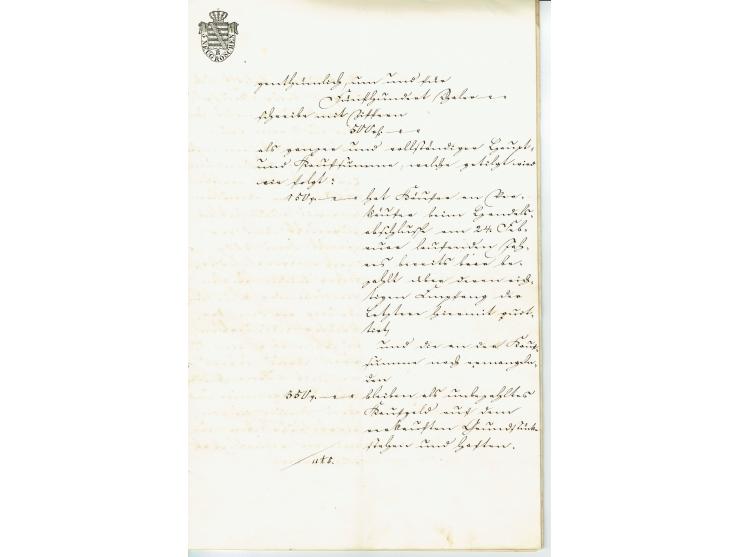 8
NEUGROSCHEN
genthümlich, um und für
Fünfhundert Thaler
schreibe mit Ziffern
500
als ganzer und vollständiger Haupt-
und Kaufsumme, welche getilgt wird
wie folgt:
150 hat Käufer an Ver-
käufer beim Handels-
abschlusse am 24. Feb-
ruar laufenden Jah-
res bereits baar be-
zahlt über deren rich-
tigen Empfang der
Letztere hiermit quit-
tirt,
und die an der Kauf-
summe noch ermangeln-
den
350 bleiben als unbezahltes
Kaufgeld auf dem
verkauften Grundstück
stehen und haften.